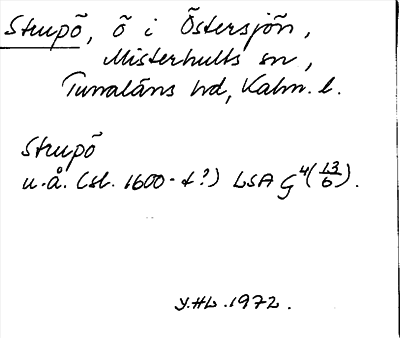 Strupö, ö i Östersjön,
Misterhults sn,
Tunaläns hd, Kalm. l.
Strupö
u.å. (sl. 1600-t?) LSA G⁴(13/6).
Y.HL. 1972.